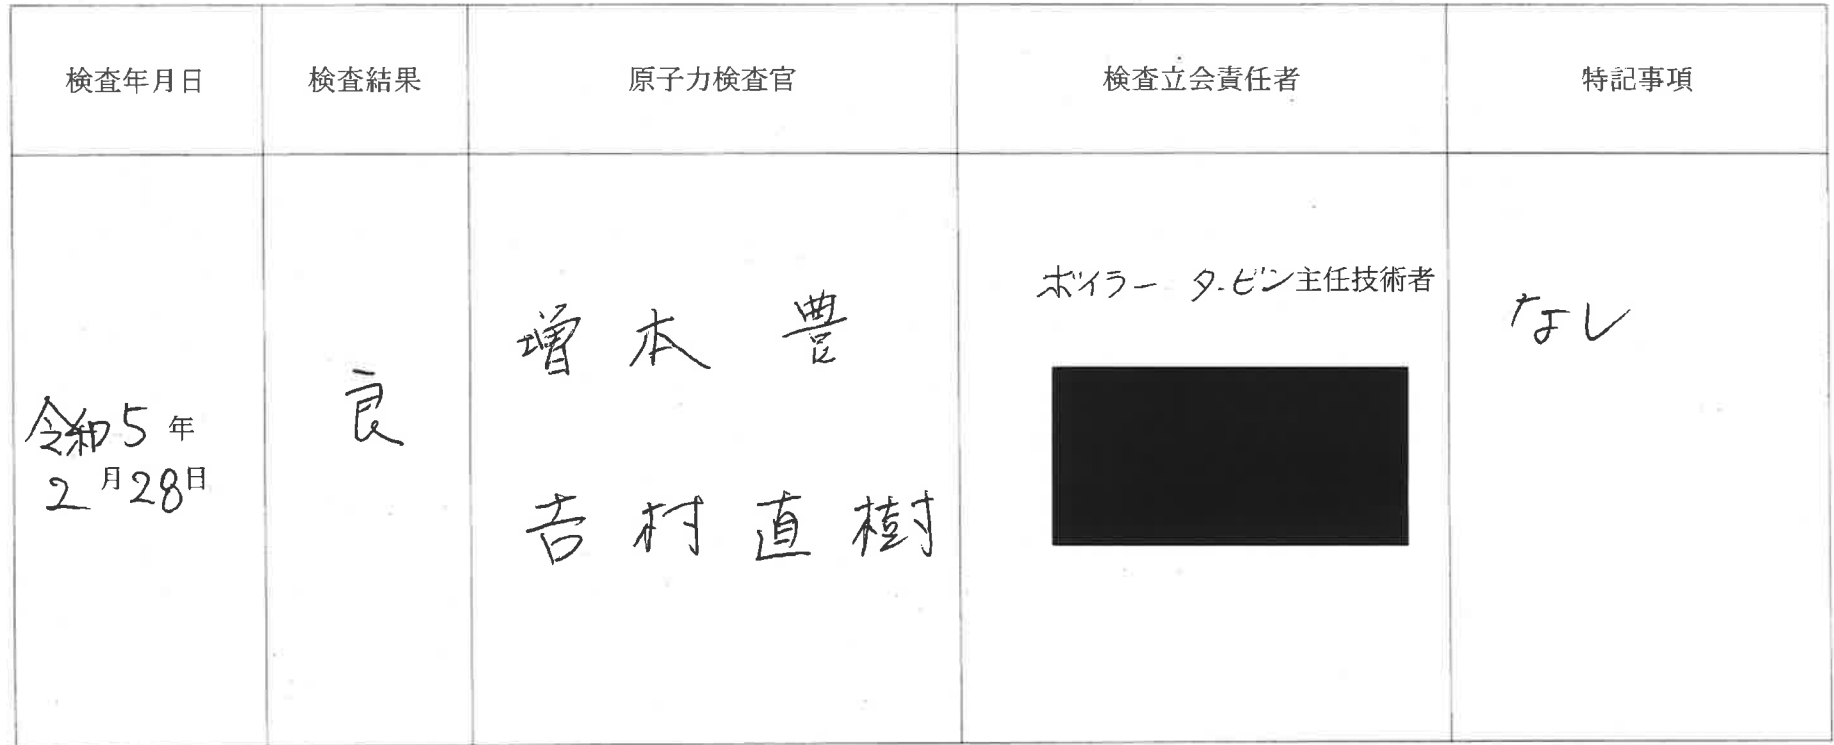 検査年月日
検査結果
原子力検査官
検査立会責任者
特記事項
令和5年
2月28日
良
増本 豊
吉村直樹
ボイラー タービン主任技術者
なし